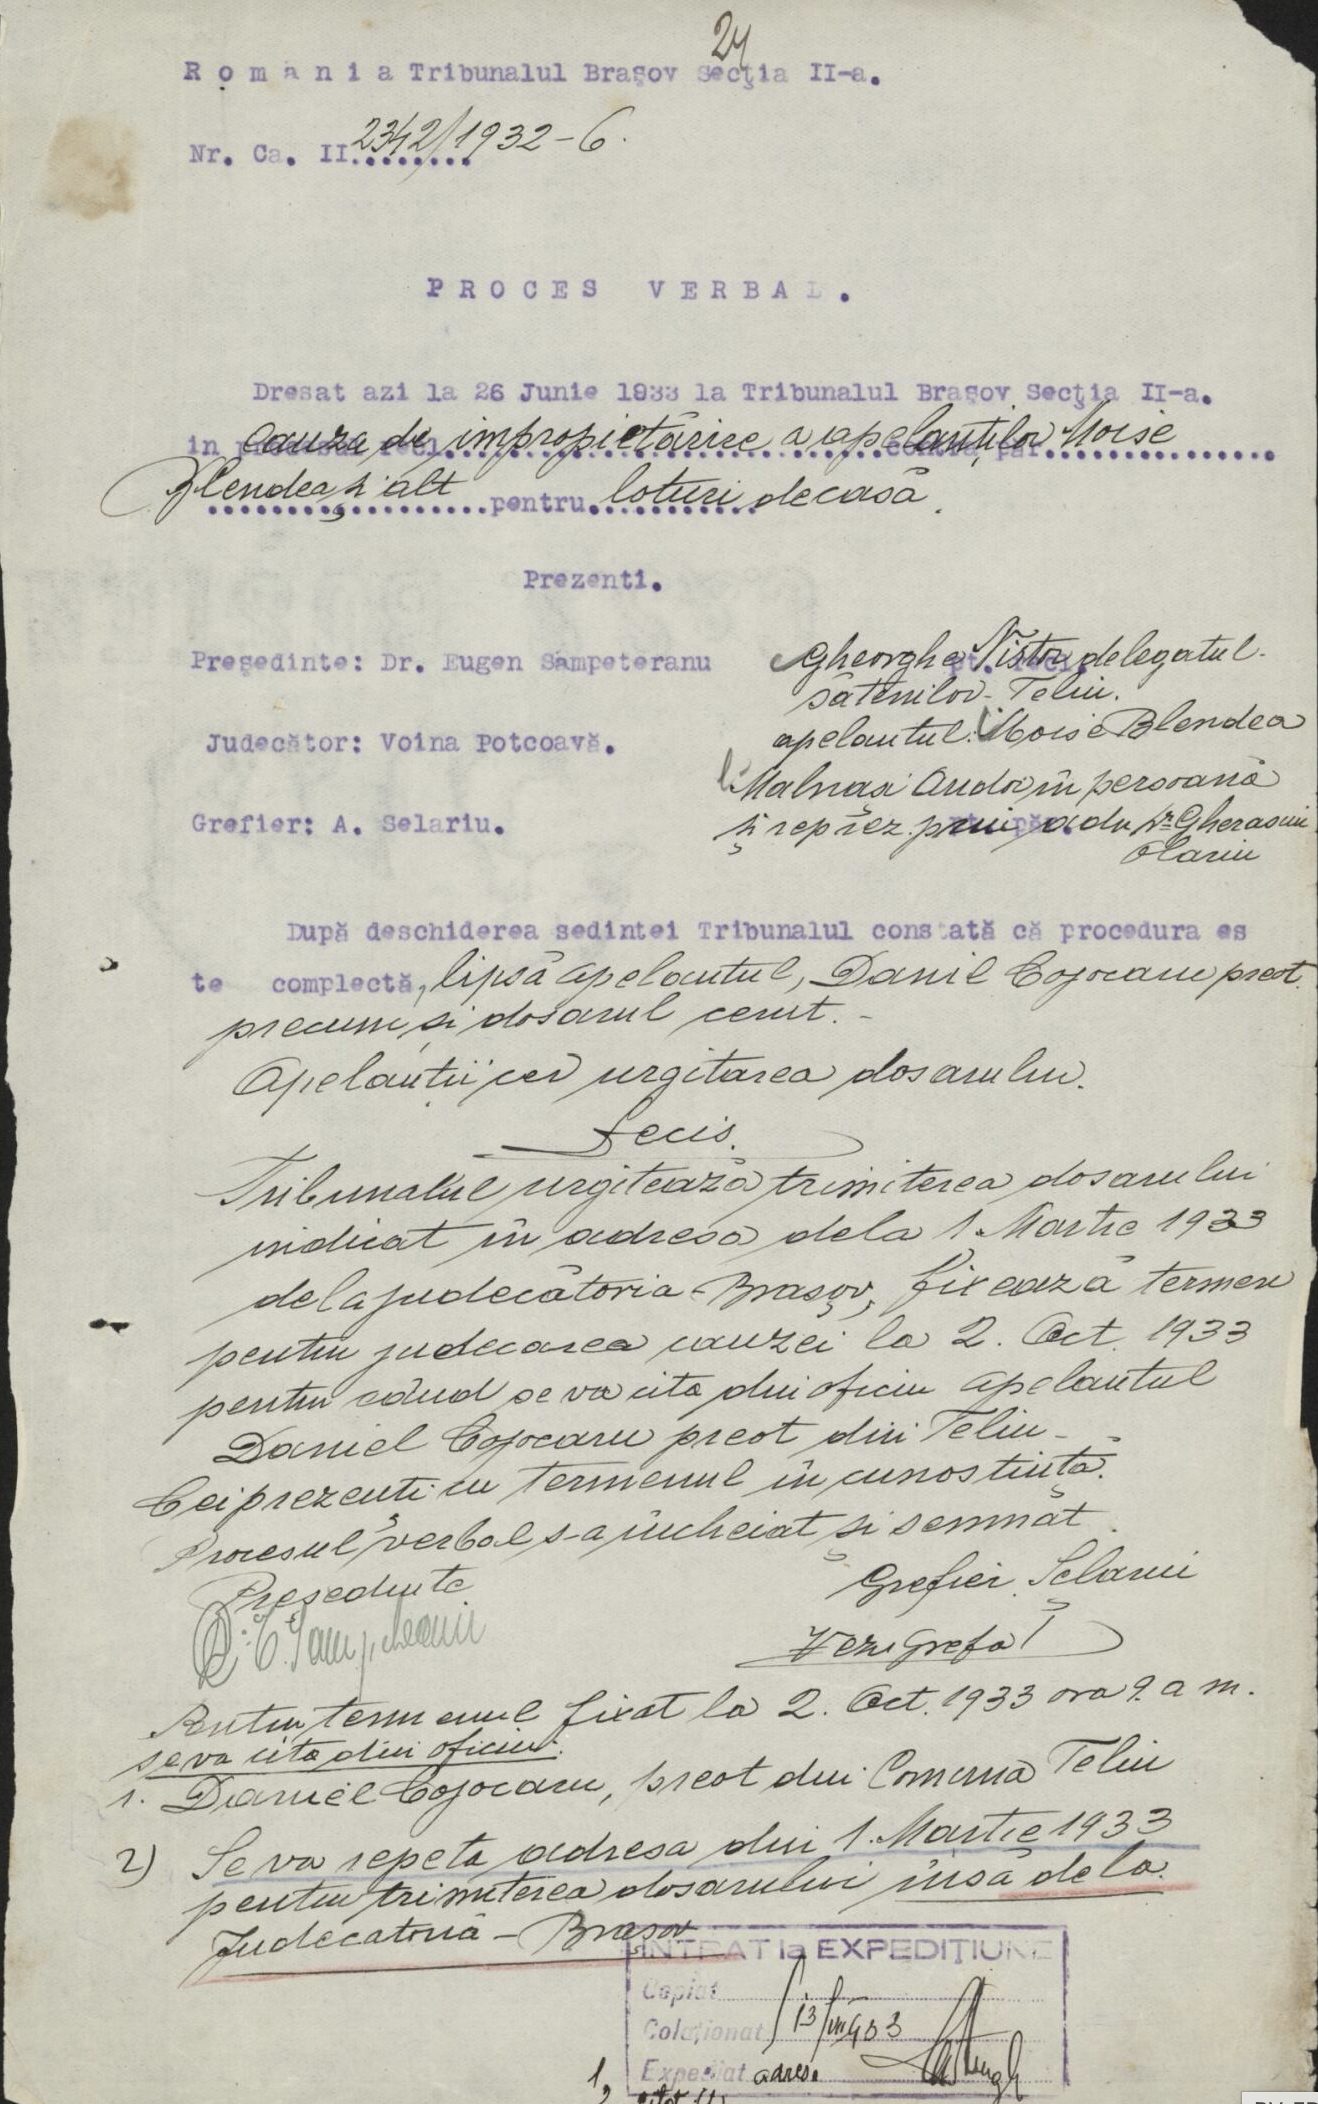 24
Romania Tribunalul Braşov Secţia II-a.
Nr. Ca. II 2342/1932-6.
PROCES VERBAL.
Dresat azi la 26 Junie 1933 la Tribunalul Braşov Secţia II-a.
in cauza de impropietărire a apelanţilor Moise
Blendea şi alt pentru loturi de casă.
Prezenti.
Preşedinte: Dr. Eugen Sampeteranu
Gheorghe Nistor delegatul
sătenilor Teliu.
Judecător: Voina Potcoavă.
apelantul: Moise Blendea
Malnaşi Andor în persoană
Grefier: A. Selariu.
şi reprez. prin adv. Dr. Gherasim
Olariu
După deschiderea sedintei Tribunalul constată că procedura es
te complectă, lipsă apelantul, Danil Cojocaru preot
precum şi dosarul cerut.-
Apelanţii cer urgitarea dosarului.
Decis.
Tribunalul urgitează trimiterea dosarului
indicat în adresa dela 1 Martie 1933
dela judecătoria-Braşov, fixează termen
pentru judecarea cauzei la 2. Oct. 1933
pentru când se va cita din oficiu apelantul
Daniel Cojocaru preot din Teliu-
Cei prezenti cu termenul în cunostiuţă.
Procesul verbal s-a încheiat şi semnat.
Preşedinte
Grefier Şelariu
Dr. E. Sampeteanu
Vezi Grefa!
Pentru termenul fixat la 2. Oct. 1933 ora 9. a m.
se va cita din oficiu:
1. Daniel Cojocaru, preot din Comuna Teliu
2) Se va repeta adresa din 1. Martie 1933
pentru trimiterea dosarului însă dela
Judecatoria-Braşov
INTRAT la EXPEDIŢIUNE
Copiat
Colaţionat 13/VII 933
Expediat adresa
1.
2